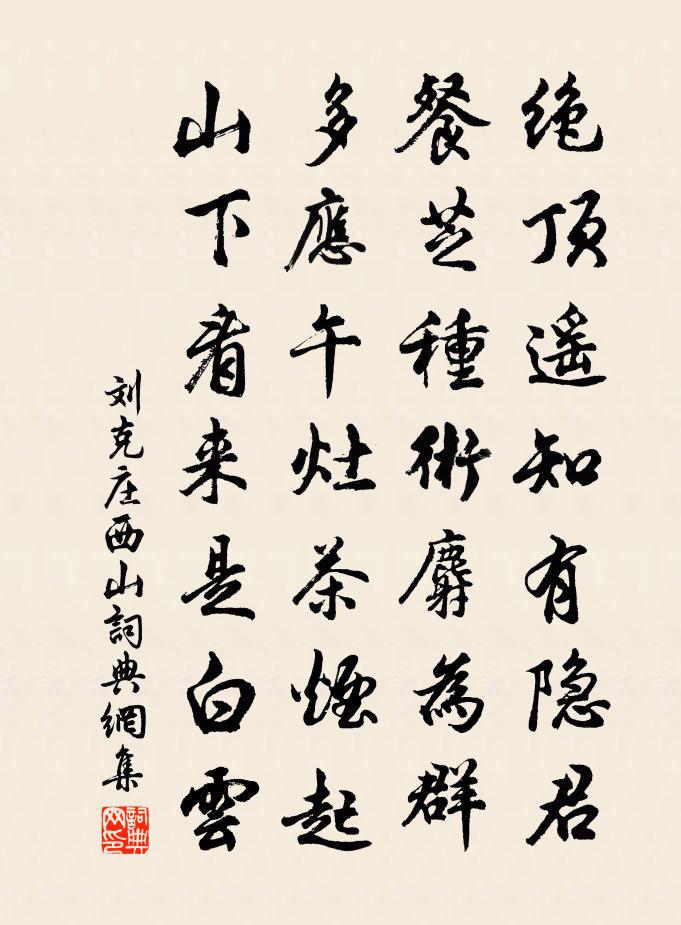 绝顶遥知有隐君
餐芝種術麝為群
多應午灶茶煙起
山下看来是白雲
刘克庄西山詞典網集
詞典网印